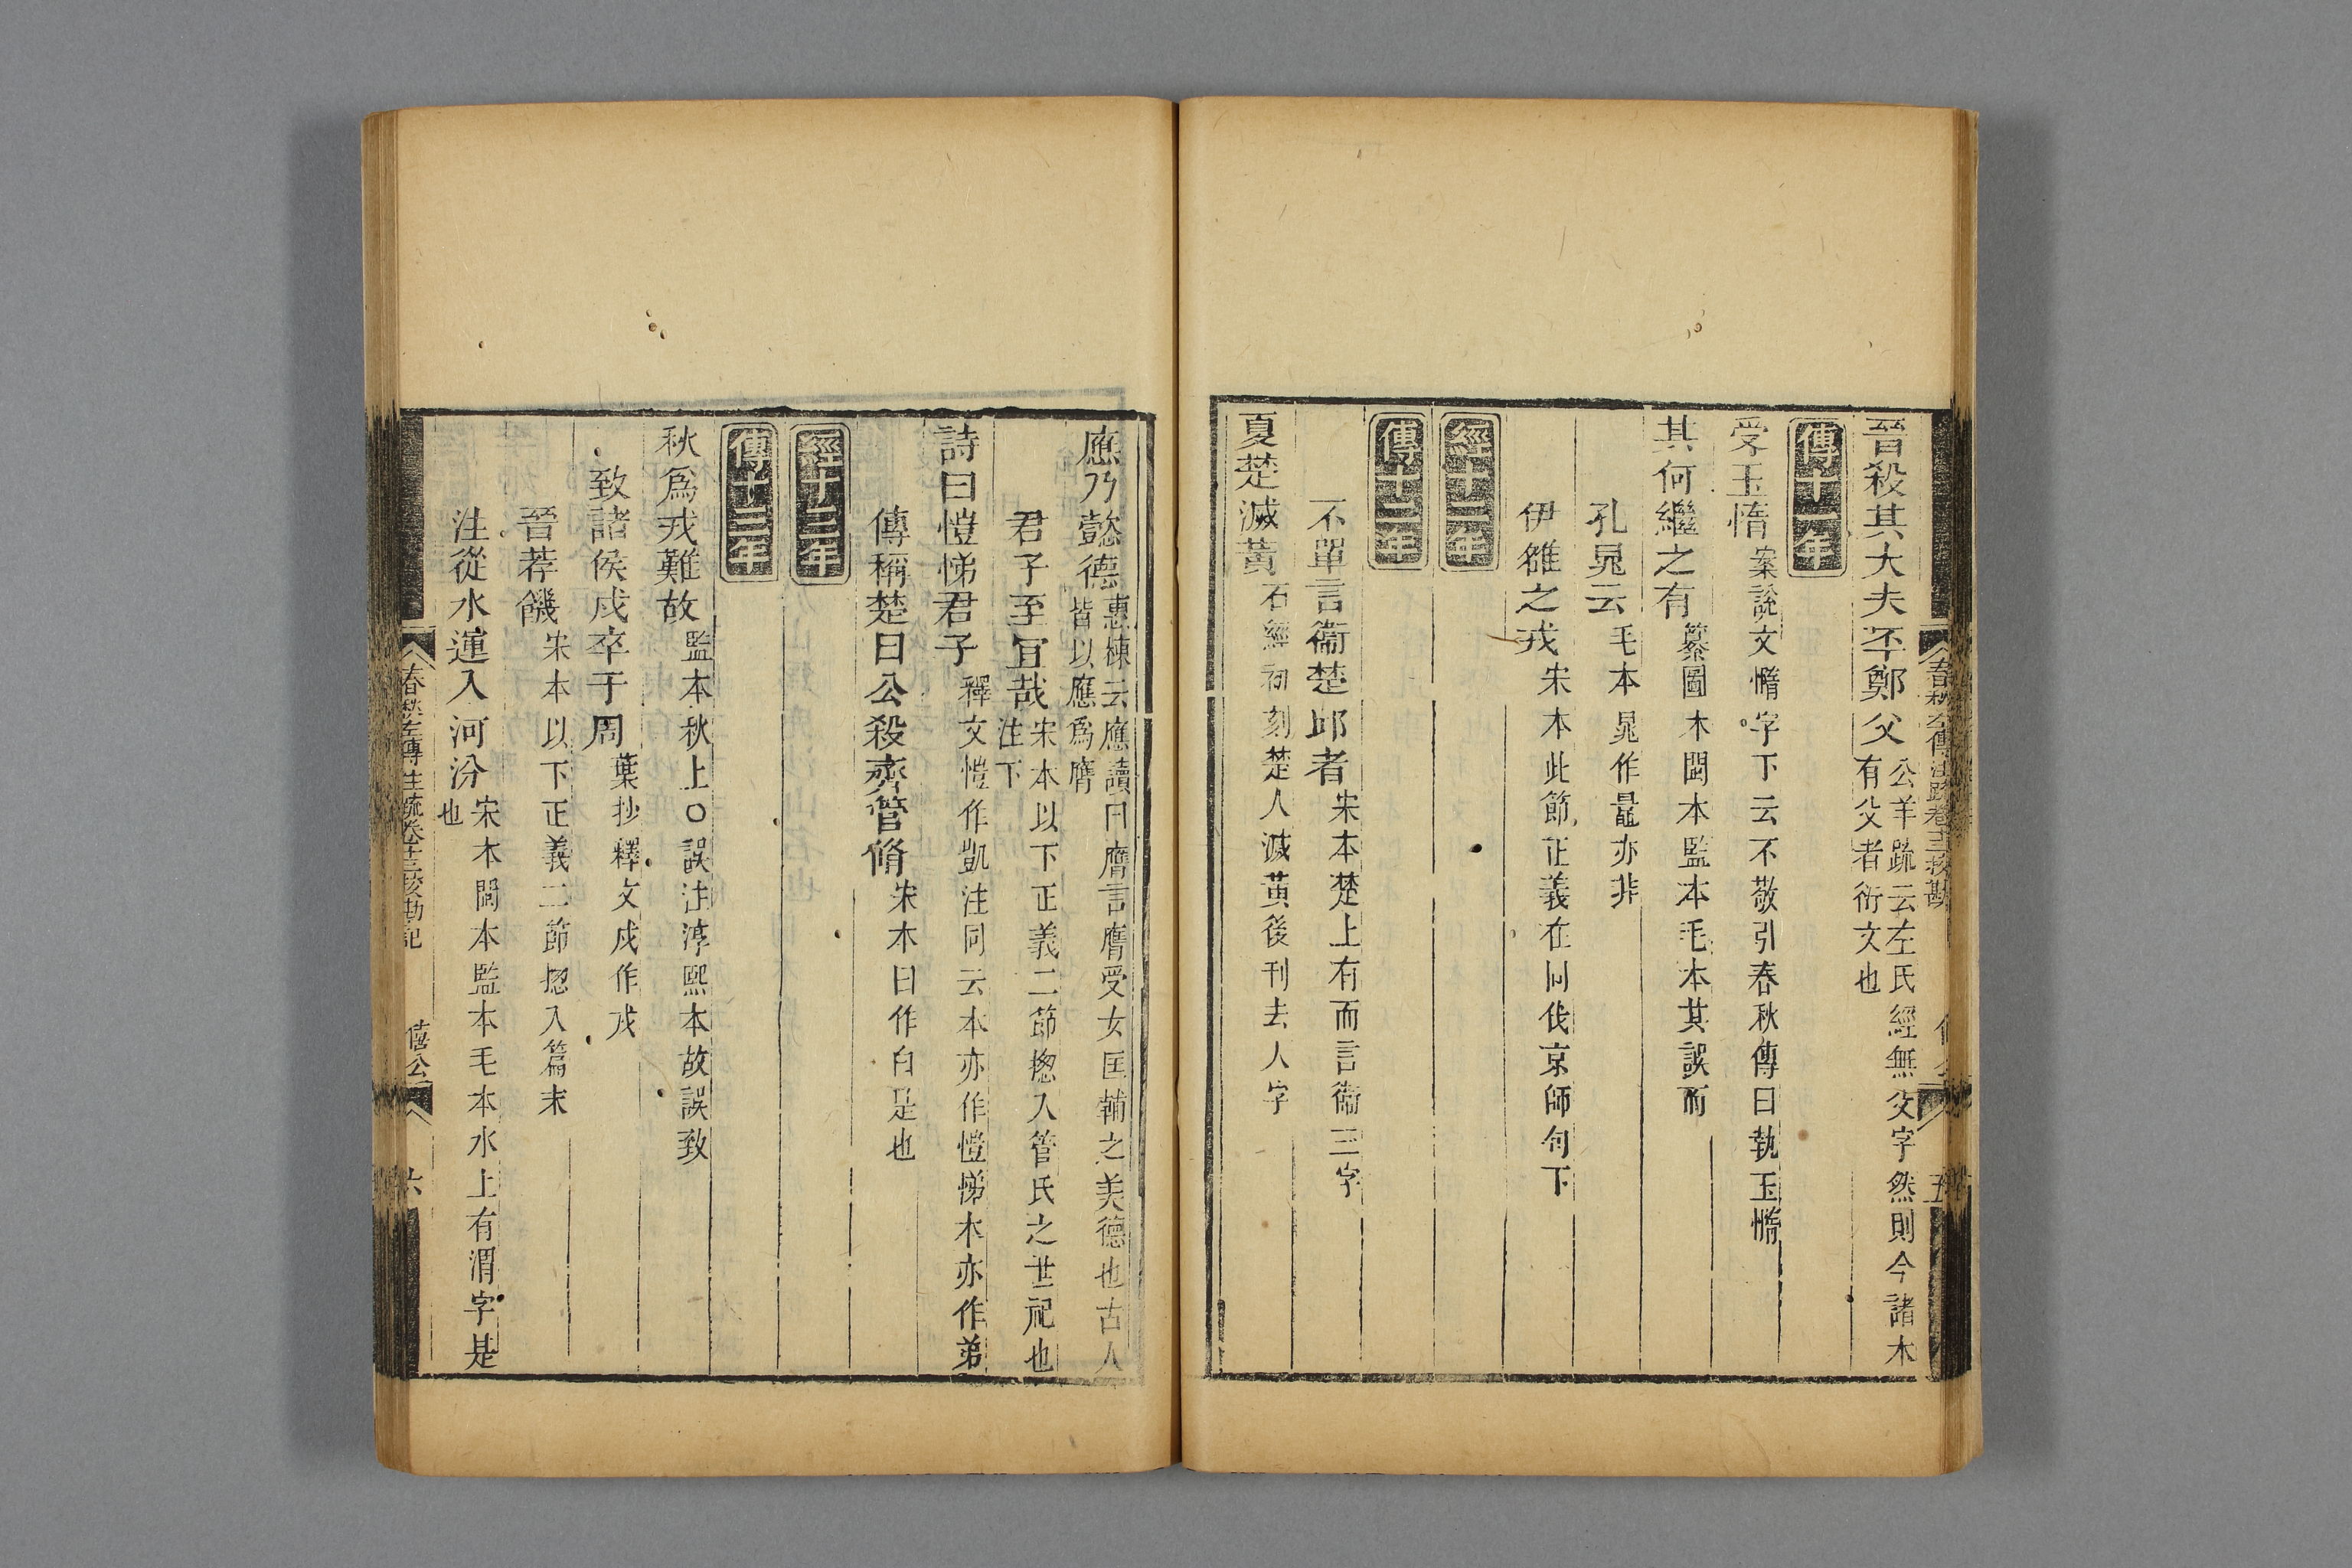 晉殺其大夫㔻鄭父公羊疏云左氏經無父字然則今諸本
有父者衍文也
傳十一年
受玉惰案說文憜字下云不敬引春秋傳曰執玉憜
其何繼之有纂圖本閩本監本毛本其誤而
孔晁云毛本晁作鼂亦非
伊雒之戎宋本此節正義在同伐京師句下
經十二年
傳十二年
不單言衞楚邱者宋本楚上有而言衞三字
夏楚滅黃石經初刻楚人滅黃後刊去人字
應乃懿德惠棟云應讀曰膺言膺受女匡輔之美德也古人
皆以應爲膺
君子至宜哉宋本以下正義二節揔入管氏之世祀也
注下
詩曰愷悌君子釋文愷作凱注同云本亦作愷悌本亦作弟
傳稱楚曰公殺齊管脩宋本曰作白是也
經十三年
傳十三年
秋爲戎難故監本秋上○誤注淳熙本故誤致
致諸侯戍卒于周葉抄釋文戍作戎
晉荐饑宋本以下正義二節揔入篇末
注從水運入河汾宋本閩本監本毛本水上有渭字是
也
春秋左傳注疏卷十三挍勘記 僖公 六